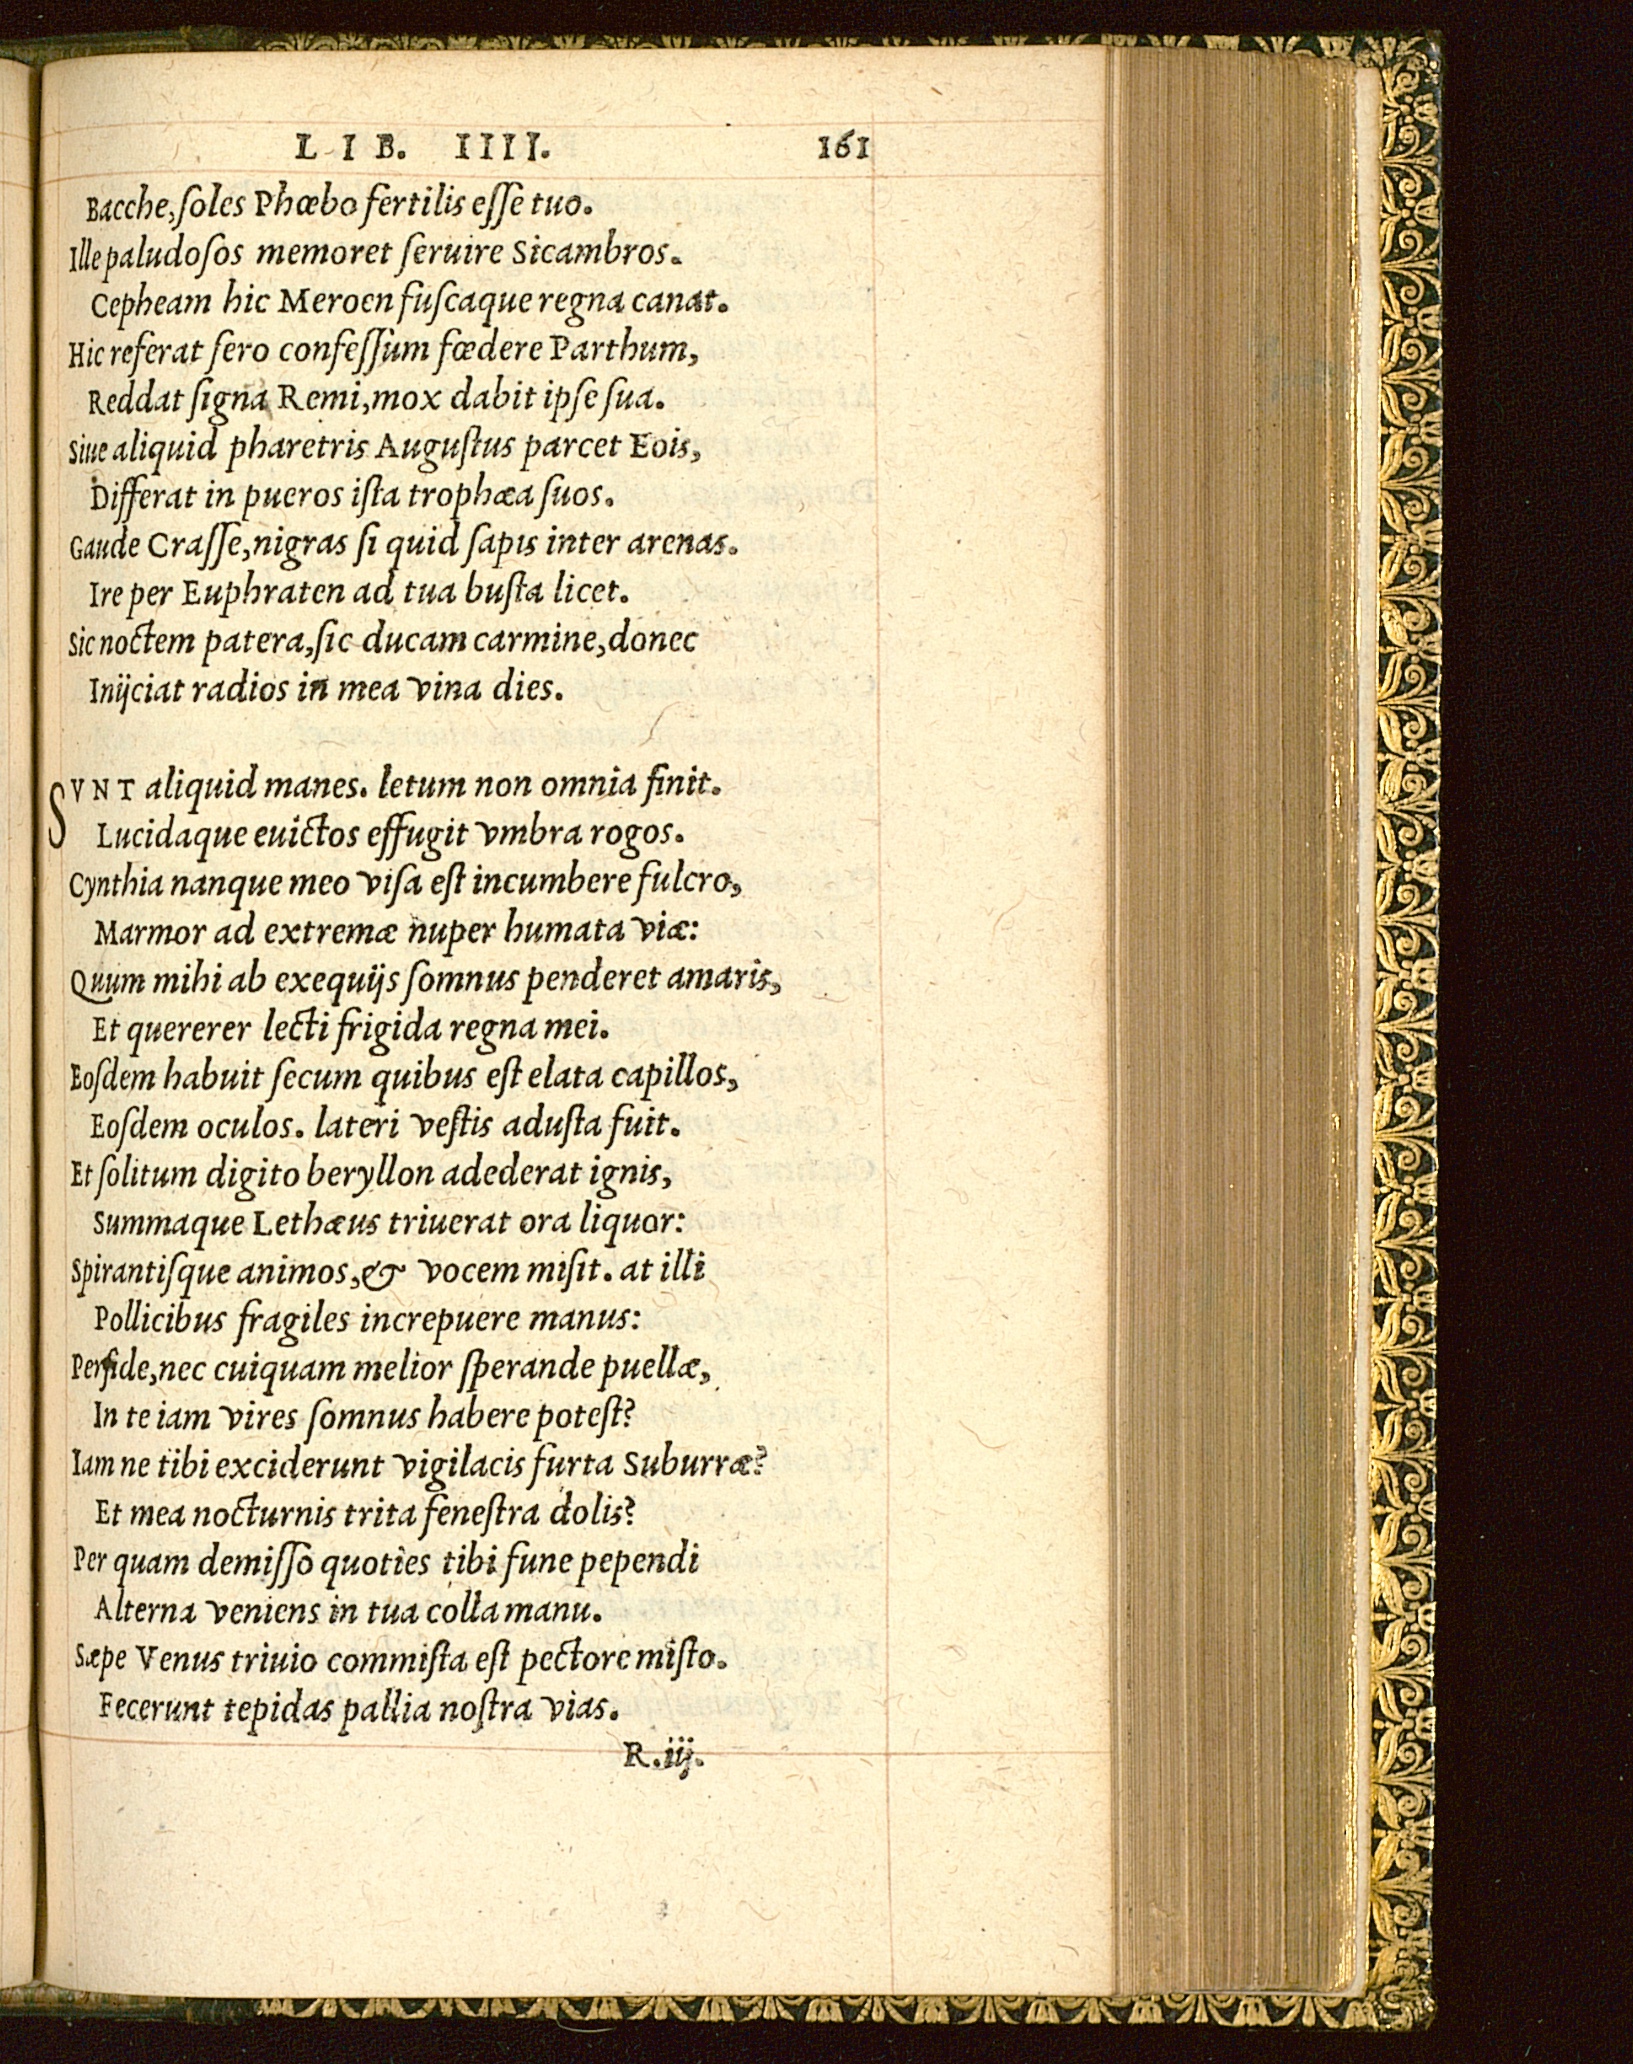 LIB. IIII. 161
Bacche,ſoles Phœbo fertilis eſſe tuo.
Ille paludoſos memoret ſeruire Sicambros.
Cepheam hic Meroen fuſcaque regna canat.
Hic referat ſero confeſſum fœdere Parthum,
Reddat ſigna Remi,mox dabit ipſe ſua.
Siue aliquid pharetris Auguſtus parcet Eois,
Differat in pueros iſta trophæa ſuos.
Gaude Craſſe,nigras ſi quid ſapis inter arenas.
Ire per Euphraten ad tua buſta licet.
Sic noctem patera,ſic ducam carmine,donec
Inijciat radios in mea vina dies.
SVNT aliquid manes. letum non omnia finit.
Lucidaque euictos effugit vmbra rogos.
Cynthia nanque meo viſa eſt incumbere fulcro,
Marmor ad extremæ nuper humata viæ:
Quum mihi ab exequijs ſomnus penderet amaris,
Et quererer lecti frigida regna mei.
Eoſdem habuit ſecum quibus eſt elata capillos,
Eoſdem oculos. lateri veſtis aduſta fuit.
Et ſolitum digito beryllon adederat ignis,
Summaque Lethæus triuerat ora liquor:
Spirantiſque animos,& vocem miſit. at illi
Pollicibus fragiles increpuere manus:
Perfide,nec cuiquam melior ſperande puellæ,
In te iam vires ſomnus habere poteſt?
Iam ne tibi exciderunt vigilacis furta Suburræ?
Et mea nocturnis trita feneſtra dolis?
Per quam demiſſo quoties tibi fune pependi
Alterna veniens in tua colla manu.
Sæpe Venus triuio commiſta eſt pectore miſto.
Fecerunt tepidas pallia noſtra vias.
R.iij.